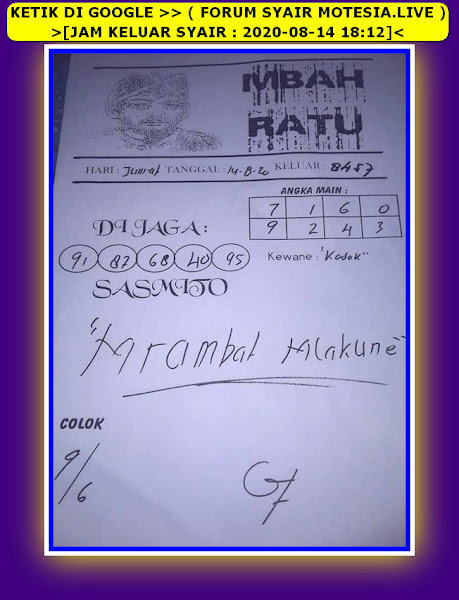 KETIK DI GOOGLE >> ( FORUM SYAIR MOTESIA.LIVE )
>[JAM KELUAR SYAIR : 2020-08-14 18:12]<
MBAH
RATU
HARI : Jumat TANGGAL : 14-8-20 KELUAR : 8457
ANGKA MAIN :
7 1 6 0
9 2 4 3
DI JAGA :
91 87 68 40 95
Kewane : "Kodok"
SASMITO
"Mrambat Mlakune"
COLOK
9/6
G7